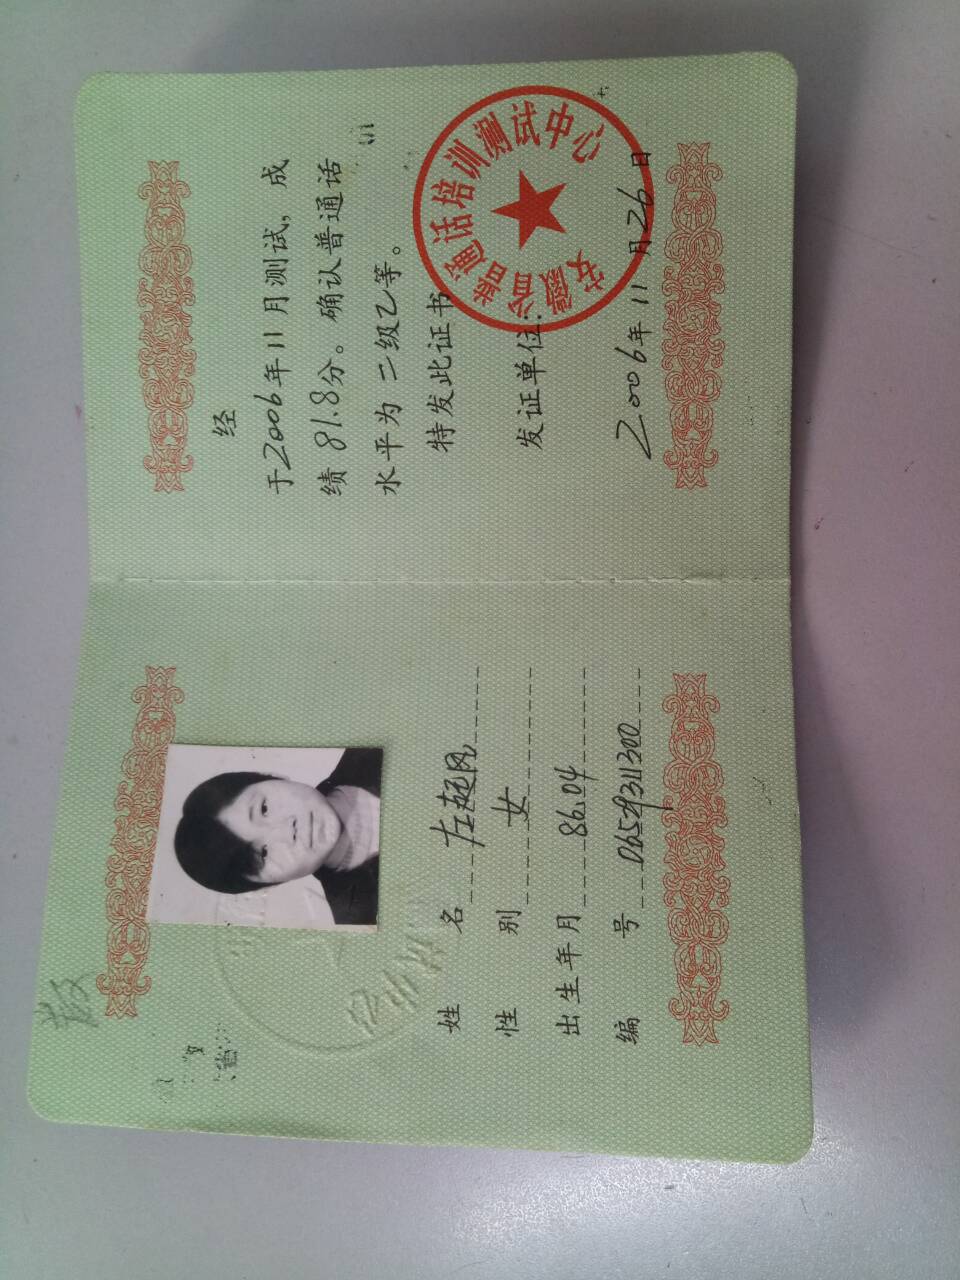 散
姓 名 左超风
性 别 女
出生年月 86.04
编 号 0659311300
经
于2006年11月测试，成
绩 81.8分。确认普通话
水平为 二级乙等。
特发此证书
发证单位：
安徽省普通话培训测试中心
2006年 11 月 26 日